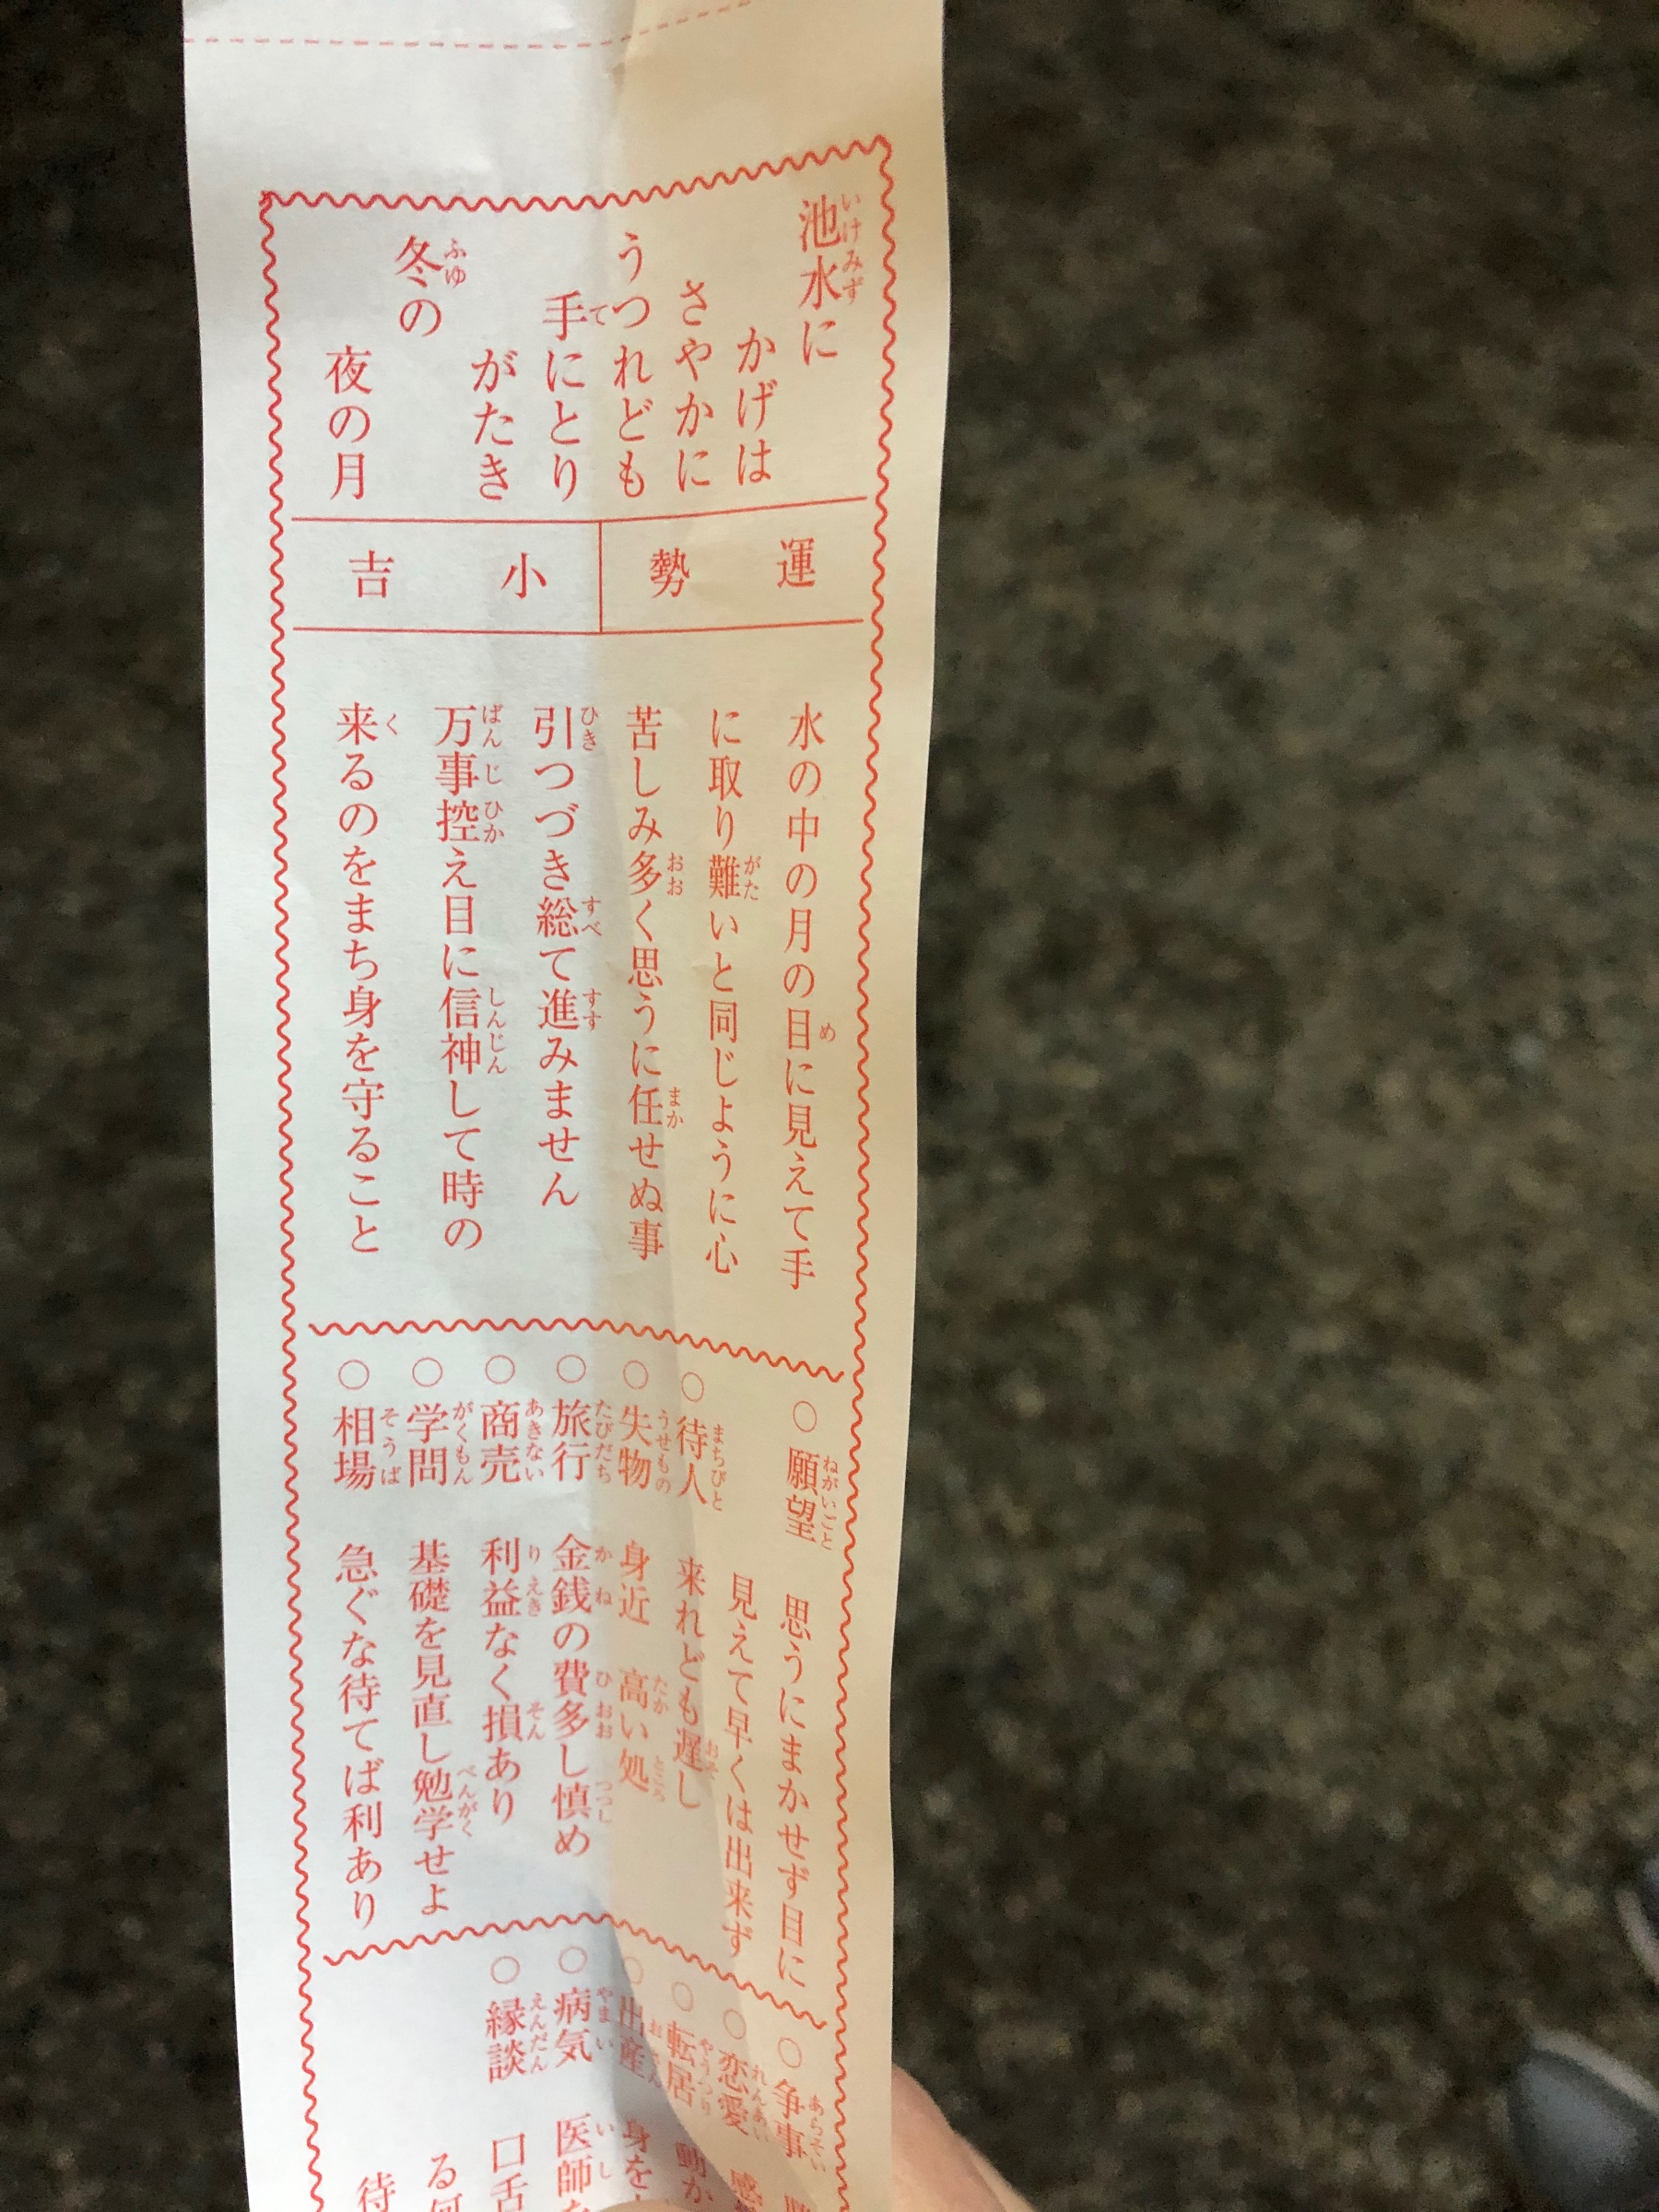 池水に
かげは
さやかに
うつれども
手にとり
がたき
冬の
夜の月
運勢
小吉
水の中の月の目に見えて手
に取り難いと同じように心
苦しみ多く思うに任せぬ事
引つづき総て進みません
万事控え目に信神して時の
来るのをまち身を守ること
○願望 思うにまかせず目に
見えて早くは出来ず
○待人 来れども遅し
○失物 身近 高い処
○旅行 金銭の費多し慎め
○商売 利益なく損あり
○学問 基礎を見直し勉学せよ
○相場 急ぐな待てば利あり
○争事
○恋愛
○転居 動か
○出産 身を
○病気 医師
○縁談 口舌
る
待